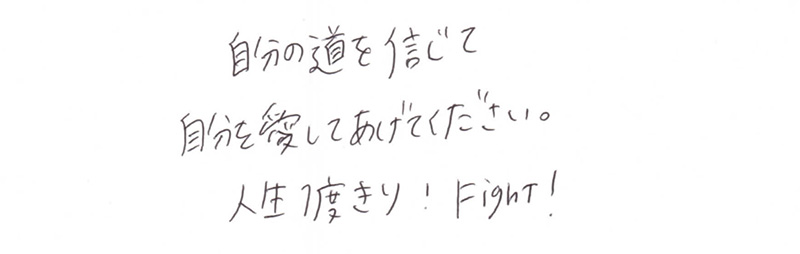 自分の道を信じて
自分を愛してあげてください。
人生1度きり！Fight！